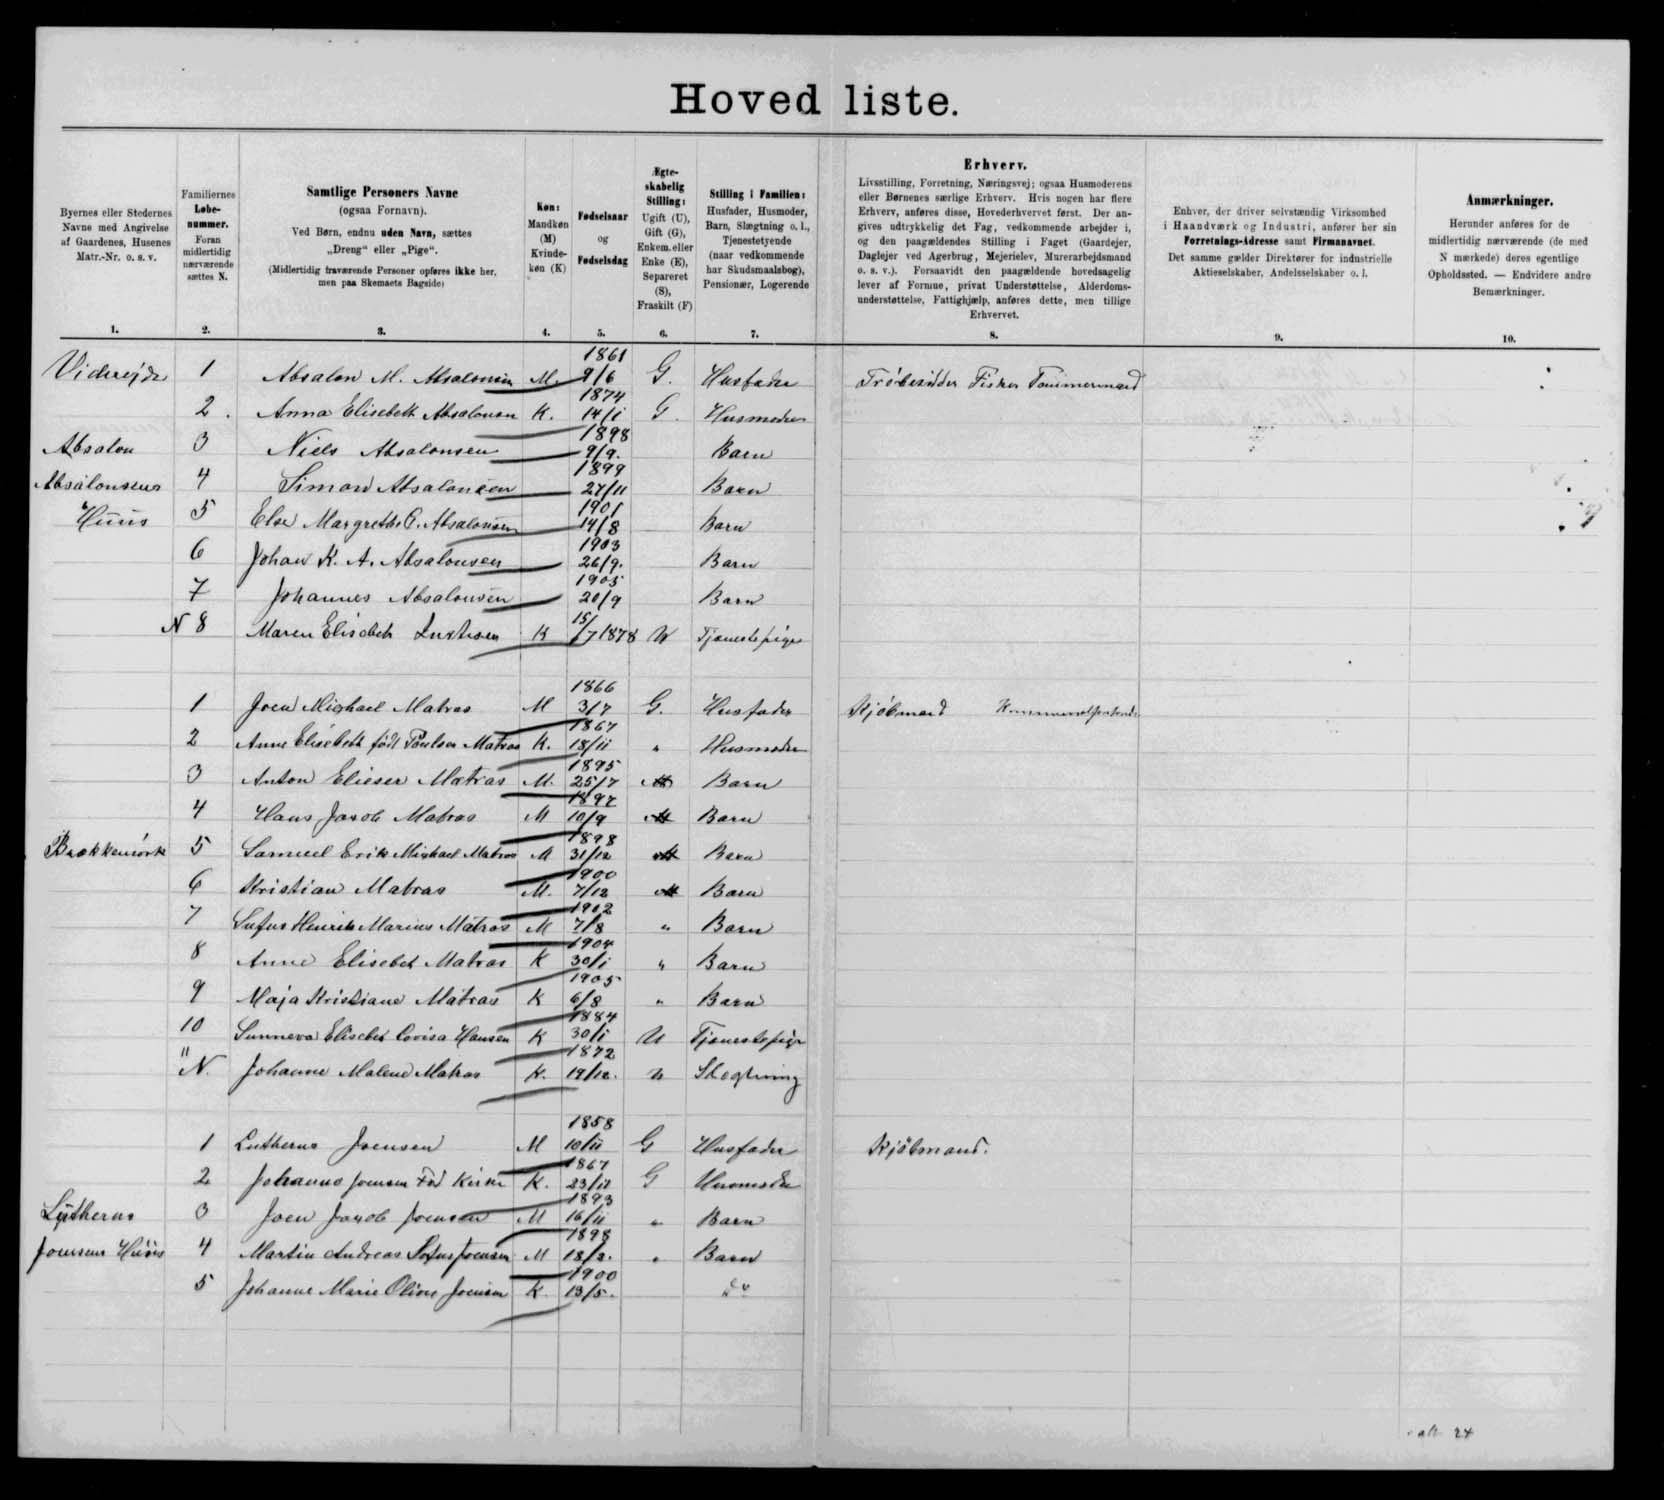 Hoved liste.
Byernes eller Stedernes Navne med Angivelse af Gaardenes, Husenes Matr.-Nr. o. s. v.
1.
Familiernes Løbenummer. Foran midlertidig nærværende sættes N.
2.
Samtlige Personers Navne
(ogsaa Fornavn).
Ved Børn, endnu uden Navn, sættes
„Dreng“ eller „Pige“.
(Midlertidig fraværende Personer opføres ikke her,
men paa Skemaets Bagside)
3.
Køn:
Mandkøn
(M)
Kvinde-
køn (K)
4.
Fødselsaar
og
Fødselsdag
5.
Ægte-
skabelig
Stilling:
Ugift (U),
Gift (G),
Enkem. eller
Enke (E),
Separeret
(S),
Fraskilt (F)
6.
Stilling i Familien:
Husfader, Husmoder,
Barn, Slægtning o. l.,
Tjenestetyende
(naar vedkommende
har Skudsmaalsbog),
Pensionær, Logerende
7.
Erhverv.
Livsstilling, Forretning, Næringsvej; ogsaa Husmoderens
eller Børnenes særlige Erhverv. Hvis nogen har flere
Erhverv, anføres disse, Hovederhvervet først. Der an-
gives udtrykkelig det Fag, vedkommende arbejder i,
og den paagældendes Stilling i Faget (Gaardejer,
Daglejer ved Agerbrug, Mejerielev, Murerarbejdsmand
o. s. v.). Forsaavidt den paagældende hovedsagelig
lever af Formue, privat Understøttelse, Alderdoms-
understøttelse, Fattighjælp, anføres dette, men tillige
Erhvervet.
8.
Enhver, der driver selvstændig Virksomhed
i Haandværk og Industri, anfører her sin
Forretnings-Adresse samt Firmanavnet.
Det samme gælder Direktører for industrielle
Aktieselskaber, Andelsselskaber o. l.
9.
Anmærkninger.
Herunder anføres for de
midlertidig nærværende (de med
N mærkede) deres egentlige
Opholdssted. — Endvidere andre
Bemærkninger.
10.
Viderejde 1 Absalon M. Absalonsen M. 1861 9/6 G. Husfader Fisker Tømmermand
2. Anna Elisebeth Absalonsen K. 1874 14/1 G. Husmoder
Absalon 3 Niels Absalonsen 1898 9/9. Barn
Absalonsens 4 Simon Absalonsen 1899 27/11 Barn
Huus 5 Else Margrethe C. Absalonsen 1901 14/8 Barn
6 Johan K. A. Absalonsen 1903 26/9. Barn
7 Johannes Absalonsen 1905 20/9 Barn
N 8 Maren Elisebeth K 15/7 1878 U Tjenestepige
1 Joen Michael Matras M 1866 3/7 G. Husfader Kjöbmand
2 Anne Elisebeth født Poulsen Matras K. 1867 18/11 " Husmoder
3 Anton Elieser Matras M. 1895 25/7 Barn
4 Hans Jacob Matras M 1897 10/9 Barn
5 Samuel Erik Michael Matras M 1898 31/12 Barn
6 Kristian Matras M. 1900 7/12 Barn
7 Sofus Henrik Marius Matras M 1902 7/8 " Barn
8 Anne Elisebet Matras K 1904 30/1 " Barn
9 Maja Kristiane Matras K 1905 6/8 " Barn
10 Sunneva Elisebet Lovisa Hansen K 1884 30/1 U Tjenestepige
11 N. Johanne Malene Matras K. 1872 19/12. U Slegtning
1 Lutherus Joensen M 1858 10/11 G Husfader Kjöbmand.
2 Johanne Joensen Fød K. 1867 G Husmoder
Lütherus 3 Joen Jacob Joensen M 1893 16/11 " Barn
Joensens Hüüs 4 Martin Andreas Sofus Joensen M 1898 18/2. " Barn
5 Johanne Marie Oline Joensen K. 1900 13/5. do
alt 24